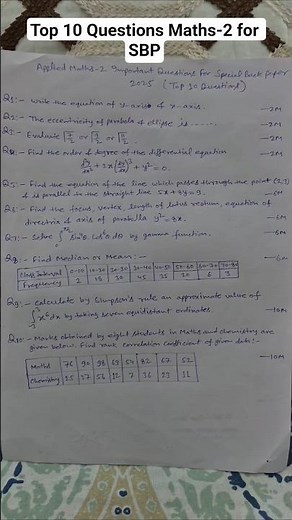 Top 10 Questions Maths-2 for
SBP
Applied Maths-2 Important Questions For Special Back Paper
2025 (Top 10 Questions)
Q1:- Write the equation of y-axis & x-axis —2M
Q2:- The eccentricity of parabola & ellipse is ...... —2M
Evaluate or or —2M
Find the order & degree of the differential equation —2M
+ y² = 0.
Q5:- Find the equation of the line which passes through the point (2,3)
& is parallel to the straight line 5x + 4y = 9.
Q6:- Find the focus, vertex, length of latus rectum, equation of
directrix & axis of parabola —6M
Q7:- Solve by gamma function. —6M
Q8:- Find Median or Mean:- —6M
Class Interval 0-10 10-20 20-30 30-40 40-50 50-60 60-70 70-80
Frequency 2 18 30 45 35 20 6 3
Q9:- Calculate by Simpson's rule an approximate value of
dx by taking seven equidistant ordinates. —10M
Q10:- Marks obtained by eight students in Maths and chemistry are
given below. Find rank correlation coefficient of given data:- —10M
Maths 76 90 98 69 54 82 67 52
Chemistry 25 37 56 12 7 36 23 11